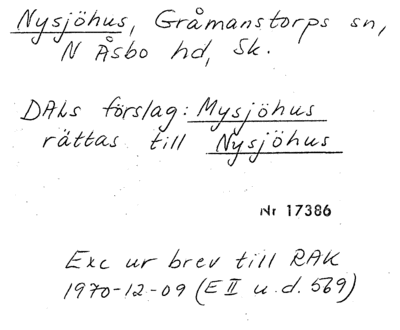 Nysjöhus, Gråmanstorps sn,
N Åsbo hd, Sk.
DALs förslag: Mysjöhus
rättas till Nysjöhus
Nr 17386
Exc ur brev till RAK
1970-12-09 (E II u.d. 569)